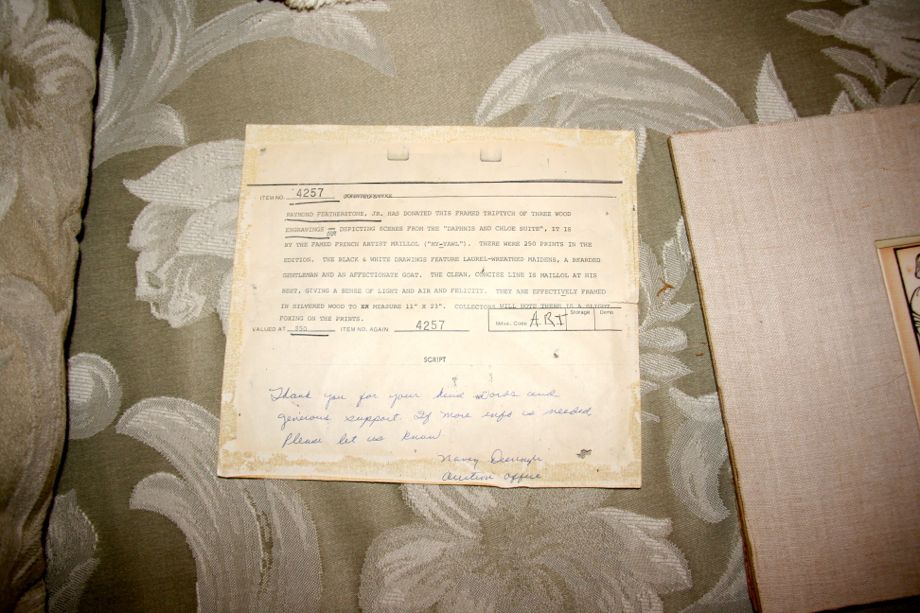 ITEM NO. 4257
RAYMOND FEATHERSTONE, JR. HAS DONATED THIS FRAMED TRIPTYCH OF THREE WOOD
ENGRAVINGS DEPICTING SCENES FROM THE "DAPHNIS AND CHLOE SUITE", IT IS
BY THE FAMED FRENCH ARTIST MAILLOL ("MY-YAWL"). THERE WERE 250 PRINTS IN THE
EDITION. THE BLACK & WHITE DRAWINGS FEATURE LAUREL-WREATHED MAIDENS, A BEARDED
GENTLEMAN AND AN AFFECTIONATE GOAT. THE CLEAN, CONCISE LINE IS MAILLOL AT HIS
BEST, GIVING A SENSE OF LIGHT AND AIR AND FELICITY. THEY ARE EFFECTIVELY FRAMED
IN SILVERED WOOD TO MEASURE 11" X 23". COLLECTORS WILL NOTE THERE IS A SLIGHT
FOXING ON THE PRINTS.
Code ART Storage Demo
VALUED AT 350 ITEM NO. AGAIN 4257
SCRIPT
Thank you for your kind words and
generous support. If more info is needed
Please let us know
Nancy
Auction Office